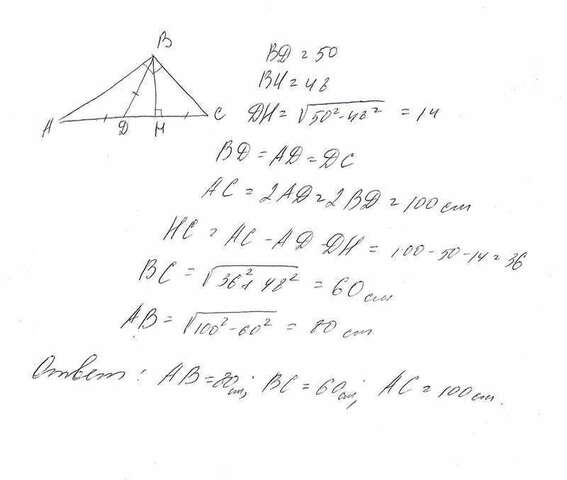 B
A
D
H
C
BD = 50
BH = 48
DH = √50²-48² = 14
BD = AD = DC
AC = 2AD = 2BD = 100 cm
HC = AC - AD - DH = 100 - 50 - 14 = 36
BC = √36²+48² = 60 cm
AB = √100²-60² = 80 cm
Ответ: AB = 80 cm; BC = 60 cm; AC = 100 cm.